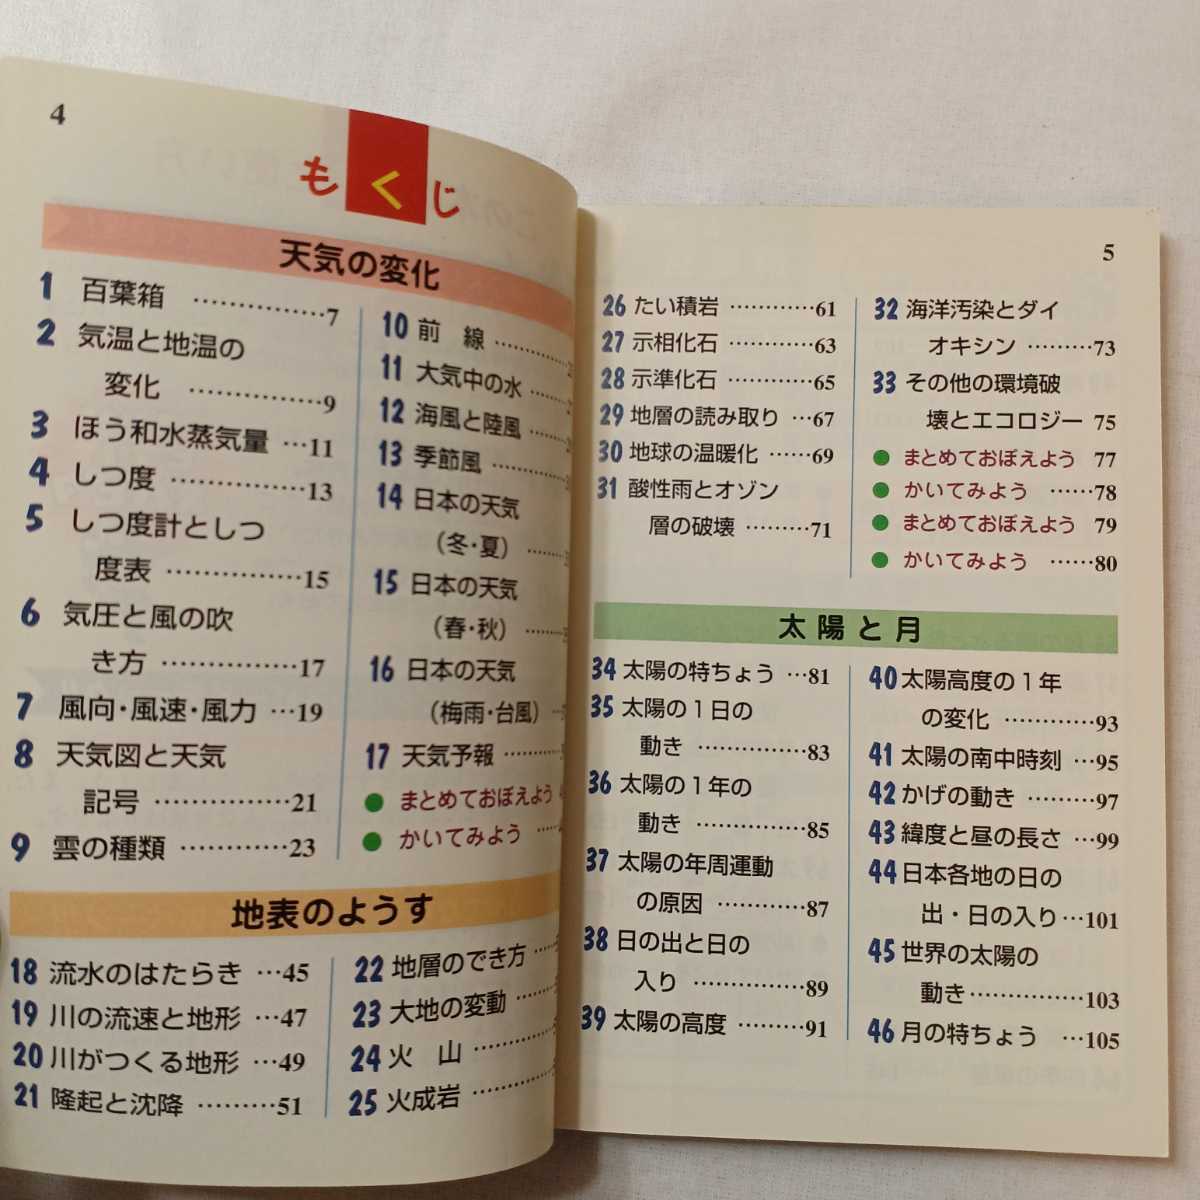 4
もくじ
天気の変化
1 百葉箱 ……………7
2 気温と地温の
変化 ……………9
3 ほう和水蒸気量 …11
4 しつ度 ……………13
5 しつ度計としつ
度表 ……………15
6 気圧と風の吹
き方 ……………17
7 風向・風速・風力 …19
8 天気図と天気
記号 ……………21
9 雲の種類 …………23
10 前 線
11 大気中の水
12 海風と陸風
13 季節風
14 日本の天気
(冬・夏)
15 日本の天気
(春・秋)
16 日本の天気
(梅雨・台風)
17 天気予報
● まとめておぼえよう
● かいてみよう
地表のようす
18 流水のはたらき …45
19 川の流速と地形 …47
20 川がつくる地形 …49
21 隆起と沈降 ………51
22 地層のでき方
23 大地の変動
24 火 山
25 火成岩
5
26 たい積岩 …………61
27 示相化石 …………63
28 示準化石 …………65
29 地層の読み取り …67
30 地球の温暖化 ……69
31 酸性雨とオゾン
層の破壊 ………71
32 海洋汚染とダイ
オキシン ………73
33 その他の環境破
壊とエコロジー 75
● まとめておぼえよう 77
● かいてみよう ……78
● まとめておぼえよう 79
● かいてみよう ……80
太陽と月
34 太陽の特ちょう …81
35 太陽の1日の
動き ……………83
36 太陽の1年の
動き ……………85
37 太陽の年周運動
の原因 …………87
38 日の出と日の
入り ……………89
39 太陽の高度 ………91
40 太陽高度の1年
の変化 …………93
41 太陽の南中時刻 …95
42 かげの動き ………97
43 緯度と昼の長さ …99
44 日本各地の日の
出・日の入り…101
45 世界の太陽の
動き……………103
46 月の特ちょう …105